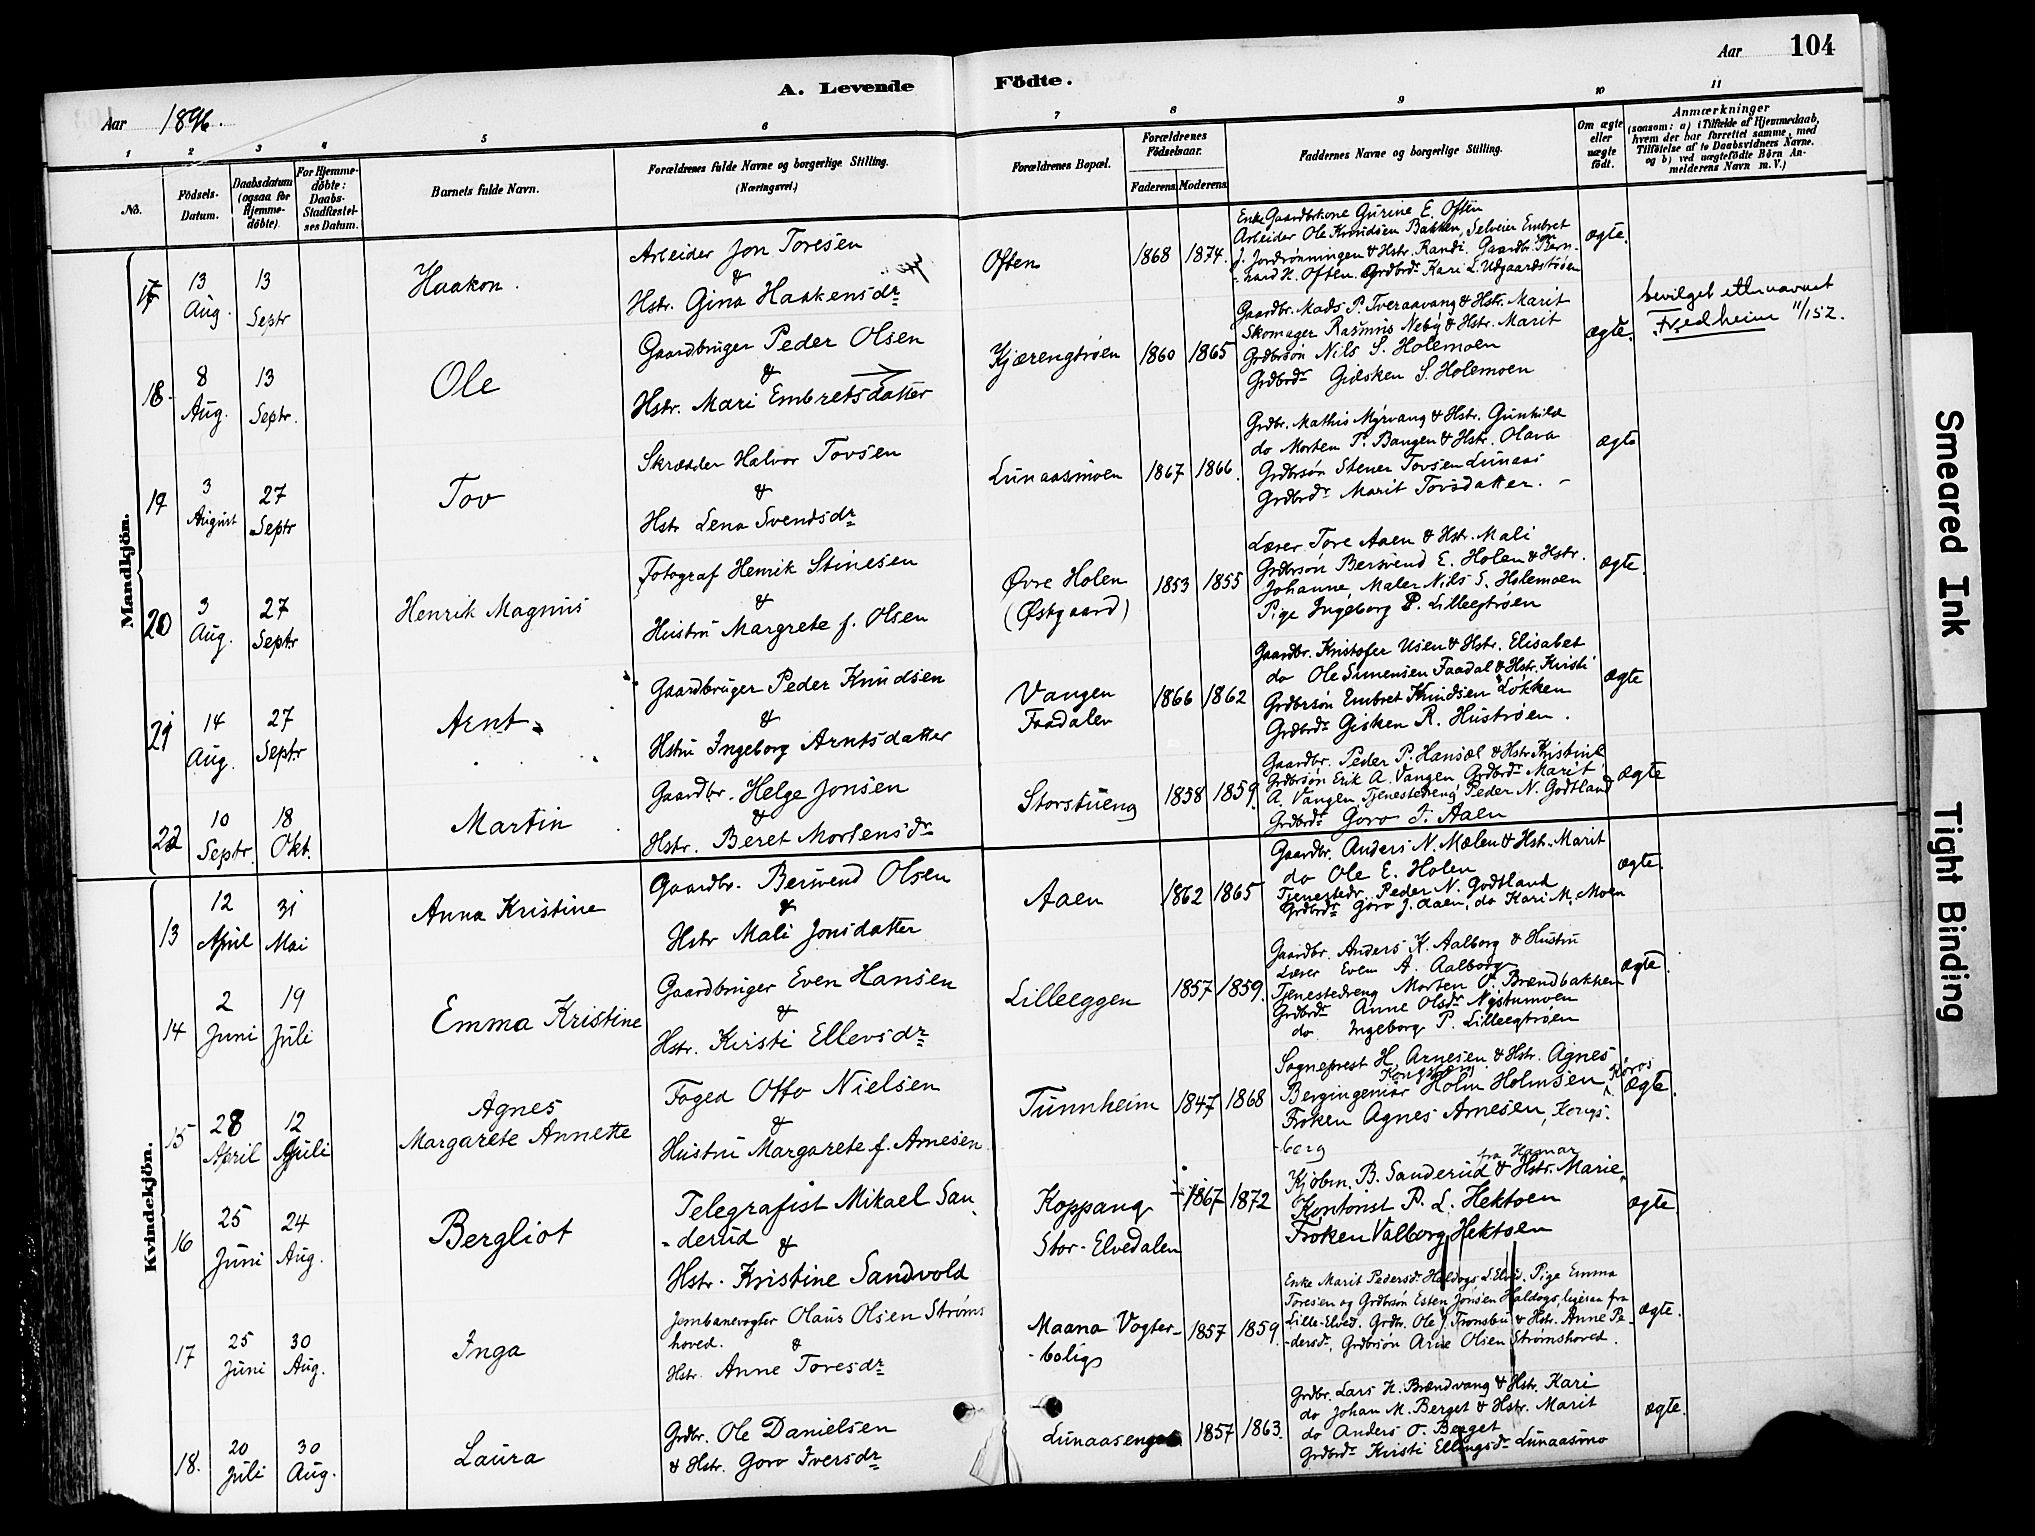 Aar 1896.
A. Levende Födte.
Aar 104
1 2 3 4 5 6 7 8 9 10 11
No.
Födsels-Datum.
Daabsdatum (ogsaa for Hjemme-döbte)
For Hjemme-döbte: Daabs-Stadfæstel-ses Datum.
Barnets fulde Navn.
Forældrenes fulde Navne og borgerlige Stilling.
(Næringsvei.)
Forældrenes Bopæl.
Forældrenes Födselsaar.
Faderens Moderens
Faddernes Navne og borgerlige Stilling.
Om ægte eller uægte födt.
Anmærkninger
(saasom: a) i Tilfælde af Hjemmedaab,
hvem der har forrettet samme, med
Tilföielse af to Daabsvidners Navne.
og b) ved uægtefödte Börn An-
melderens Navn m. V.)
Mandkjön.
17 13 Aug. 13 Septr
Haakon.
Arbeider Jon Toresen
&
Hstr. Gina Haakensdr
Often
1868 1874.
Enke Gaardbrkone Gurine E. Often
Arbeider Ole Knudsen Bakken, Selveier Embret
J. Jordrønningen & Hstr. Randi. Gaardbr.søn Bern-
-hard H. Often. Grdbrdr Kari L. Udgaardstrøen
ægte.
18. 8 Aug. 13 Septr.
Ole
Gaardbruger Peder Olsen
&
Hstr. Mari Embretsdatter
Kjærengtrøen
1860 1865
Gaardbr. Mads P. Tveraavang & Hstr. Marit
Skomager Rasmus Neby & Hstr. Marit
Grdbrsön Nils S. Holemoen
Grdbrdr Gidsken S. Holemoen
ægte.
bevilget etternavnet
Fredheim 11/1 52.
19 3 August 27 Septr
Tov
Skrædder Halvor Tovsen
&
Hstr Lena Svendsdr
Lunaasmoen
1867 1866.
Grdbr. Mathis Myrvang & Hstr. Gunhild
do Morten P. Bangen & Hstr. Olava
Grdbrsön Stener Tovsen Lunaas
Grdbrdr Marit Tovsdatter. -
ægte
20 3 Aug. 27 Septr
Henrik Magnus
Fotograf Henrik Stinesen
&
Hustru Margrete f. Olsen
Øvre Holen
(Østgaard)
1853 1855
Lærer Tore Aaen & Hstr. Mali
Grdbrsön Bersvend E. Holen & Hstr.
Johanne, Maler Nils S. Holemoen
Pige Ingeborg P. Lilleegtrøen
ægte.
21 14 Aug. 27 Septr
Arnt
Gaardbruger Peder Knudsen
&
Hstru Ingeborg Arntsdatter
Vangen
Faadalen
1866 1862
Gaardbr. Kristofer Usen & Hstr. Elisabet
do Ole Simensen Faadal & Hstr. Kirsti
Grdbrsön Embret Knudsen Løkken
Grdbrdr Gisken R. Hustrøen.
ægte
22 10 Septr. 18 Okt.
Martin
Gaardbr. Helge Jonsen
&
Hstr. Beret Mortensdr
Storstueng
1858 1859.
Gaardbr. Peder P. Hansæl & Hstr Kristine
Grdbrsön Erik A. Vangen Grdbrdr Marit
A. Vangen, Tjenestedreng Peder N. Godtland
Grdbrdr Goro J. Aaen
ægte
Kvindekjön.
13 12 April 31 Mai
Anna Kristine
Gaardbr. Bersvend Olsen
&
Hstr Mali Jonsdatter
Aaen
1862 1865
Gaardbr. Anders N. Mælen & Hstr. Marit
do Ole E. Holen
Tjenestedr. Peder N. Godtland
Grdbrdr Goro J. Aaen, do Kari M. Moen
ægte.
14 2 Juni 19 Juli
Emma Kristine
Gaardbruger Even Hansen
&
Hstr. Kirsti Ellevsdr
Lilleeggen
1857 1859.
Gaardbr. Anders K. Aalborg & Hustru
Lærer Even A. Aalborg
Tjenestedreng Morten O. Brændbakken
Grdbrdr Anne Olsdr Nystumoen
do Ingeborg P. Lilleegtrøen
ægte.
15 28 April 12 Juli
Agnes
Margarete Annette
Foged Otto Nielsen
&
Hustru Margarete f. Arnesen
Tunnheim
1847 1868
Sogneprest H. Arnesen & Hstr. Agnes
Kongsberg
Bergingeniør Holm Holmsen, Röros
Frøken Agnes Arnesen, Kongs-
-berg
ægte.
16 25 Juni 24 Aug.
Bergliot
Telegrafist Mikael San-
-derud &
Hstr. Kristine Sandvold
Koppang
Stor-Elvedalen
1867 1872
fra Hamar
Kjøbm. B. Sanderud & Hstr. Marie
Kontorist P. L. Hektoen
Frøken Valborg Hektoen
ægte
17 25 Juni 30 Aug.
Inga
Jernbanevogter Olaus Olsen Strøms
hoved. &
Hstr. Anne Toresdr
Maana Vogter-
-bolig
1857 1859.
Enke Marit Pedersdr Haldogs L.Elvd. Pige Emma
Toresen og Grdbrsön Esten Jonsen Haldogs, ligesaa fra
Lille-Elved. Grdbr. Ole J. Tronsbu & Hstr. Anne Pe-
-dersdr, Grdbrsön Arne Olsen Strømshoved.
ægte.
18. 20 Juli 30 Aug.
Laura
Grdbr. Ole Danielsen
& Hstr. Goro Iversdr
Lunaasenget
1857 1863.
Grdbr. Lars H. Brændvang & Hstr. Kari
do Johan M. Berget & Hstr. Marit
do Anders O. Berget
Grdbrdr Kirsti Ellingsdr Lunaasmo
ægte.
Smeared Ink
Tight Binding